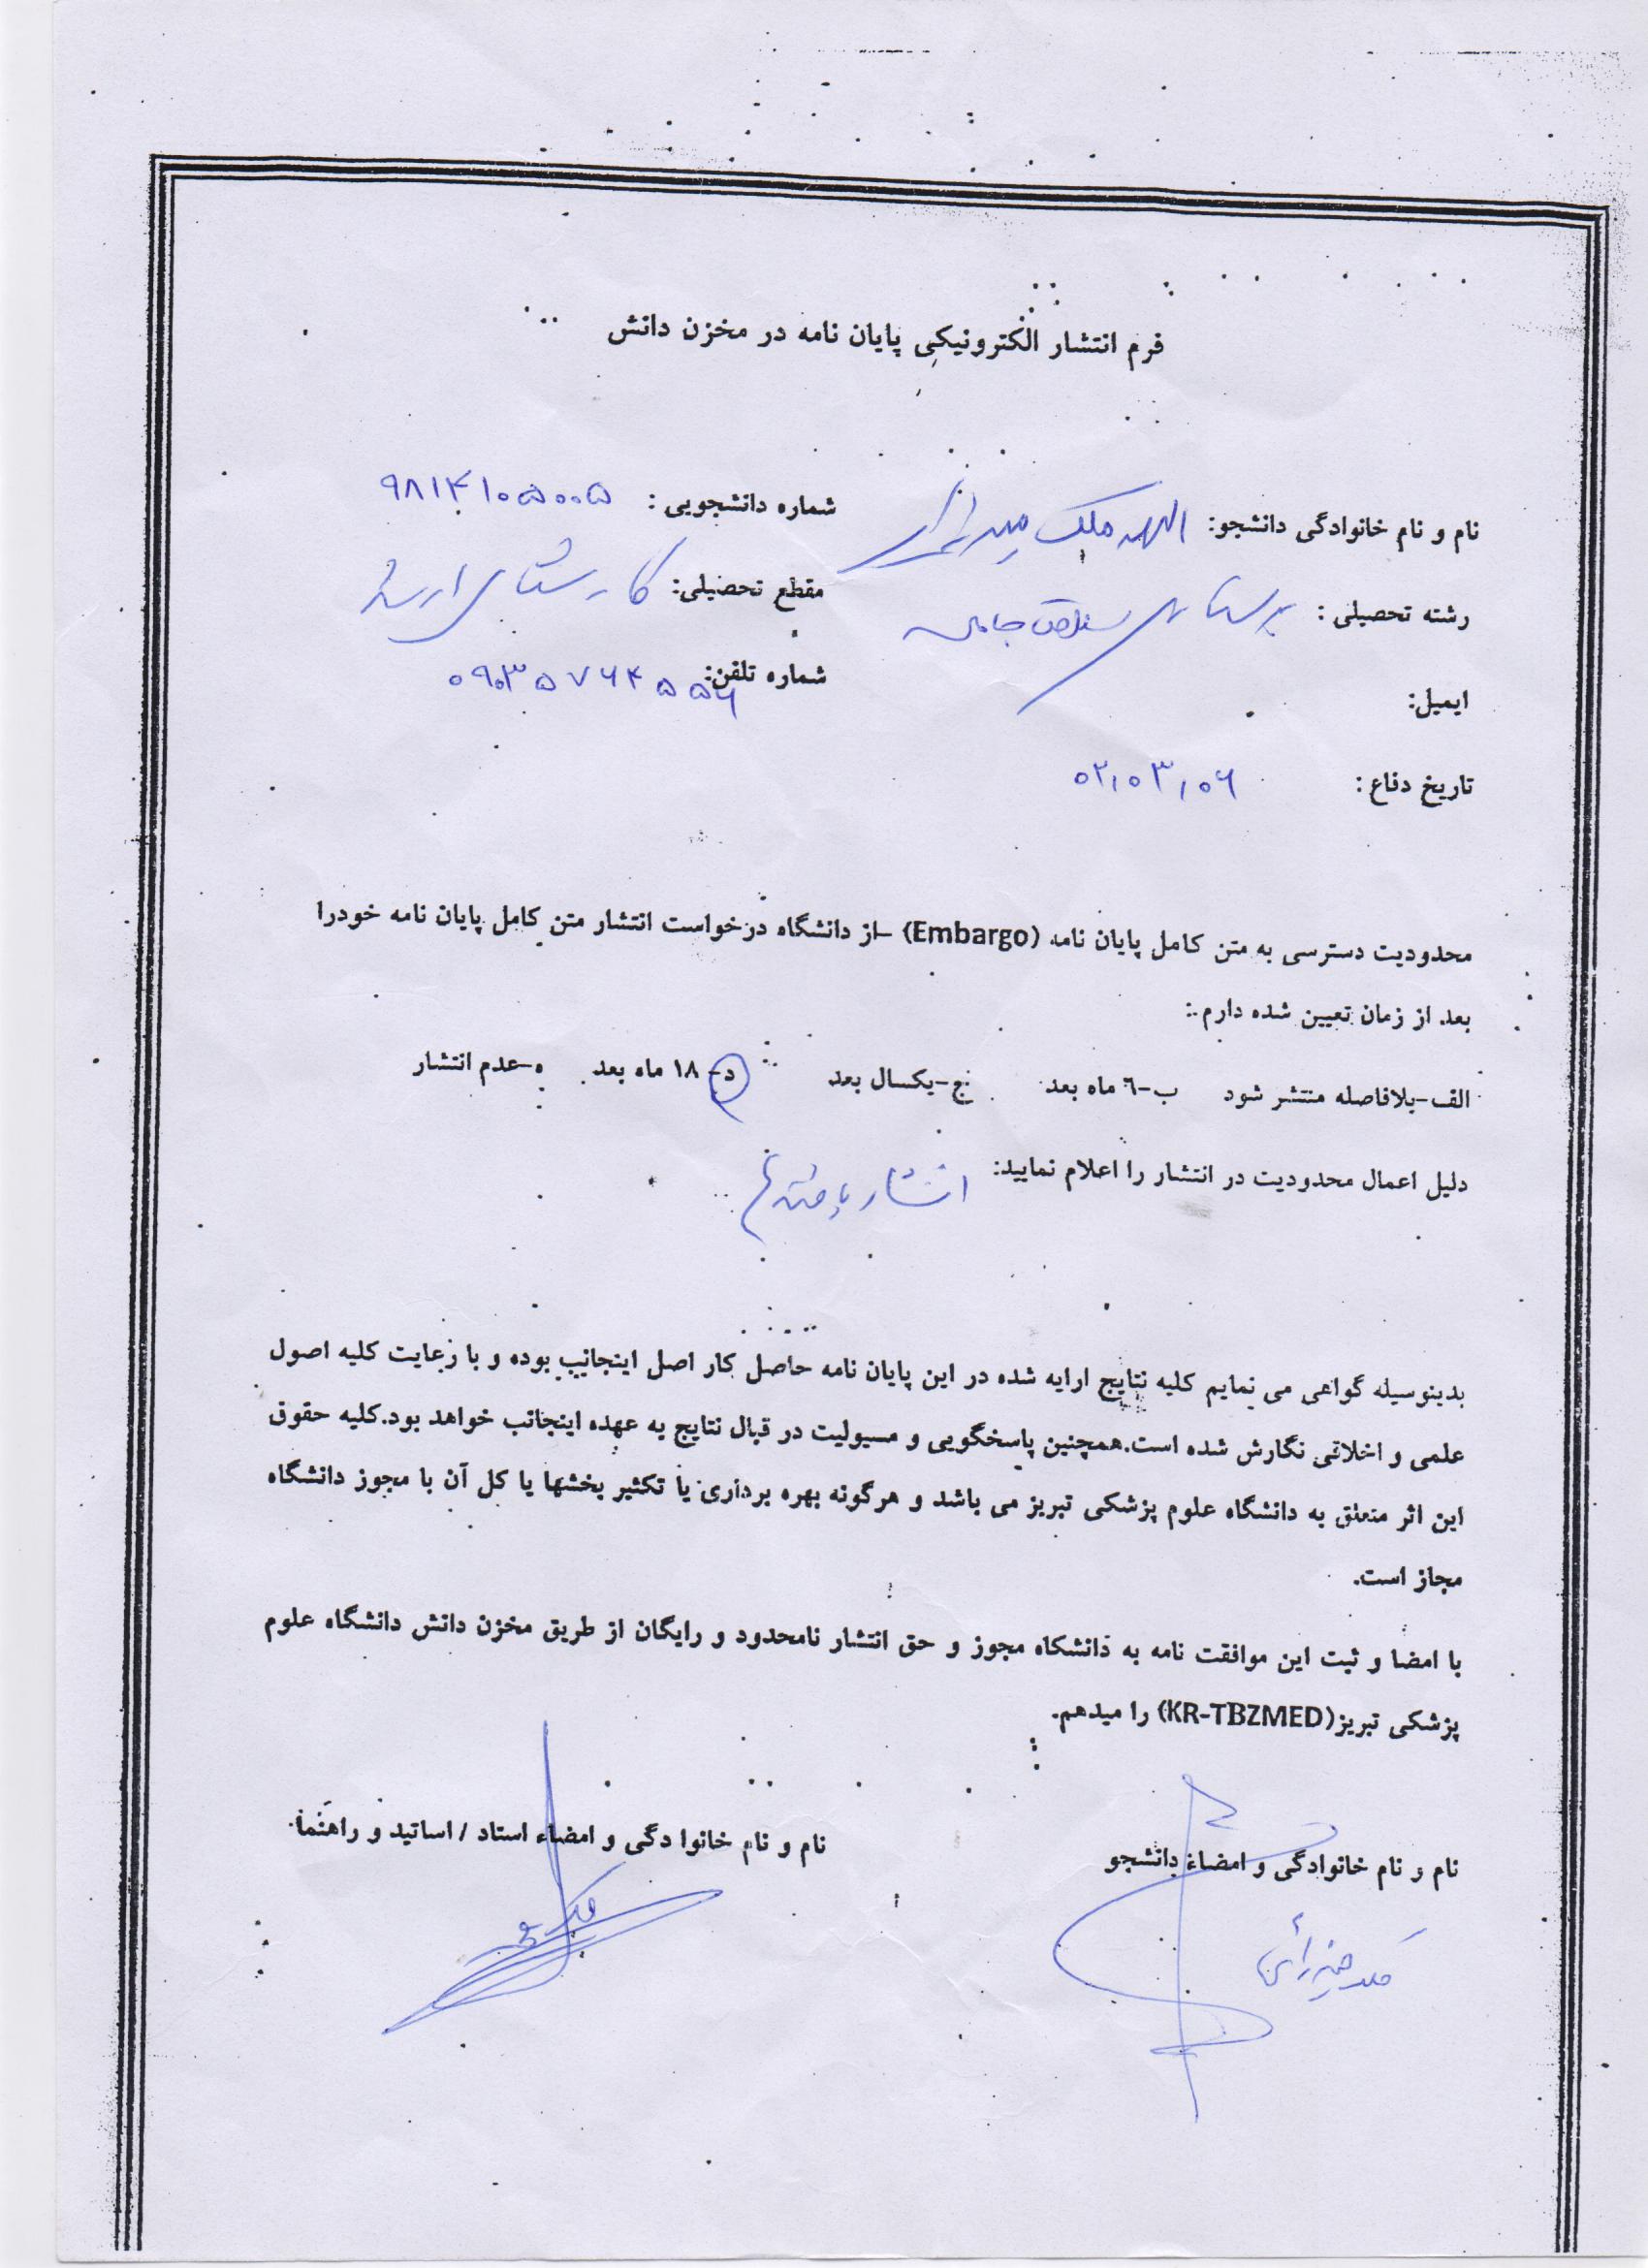 فرم انتشار الکترونیکی پایان نامه در مخزن دانش
نام و نام خانوادگی دانشجو: الهه ملک شماره دانشجویی : ۹۸۱۴۱۰۵۰۰۵
رشته تحصیلی : پرستاری سلامت جامعه مقطع تحصیلی: کارشناسی ارشد
ایمیل: شماره تلفن: ۰۹۰۳۵۷۶۴۵۵۶
تاریخ دفاع : ۰۲,۰۳,۰۶
محدودیت دسترسی به متن کامل پایان نامه (Embargo) -از دانشگاه درخواست انتشار متن کامل پایان نامه خودرا
بعد از زمان تعیین شده دارم :
الف-بلافاصله منتشر شود ب-٦ ماه بعد ج-یکسال بعد د- ۱۸ ماه بعد ه-عدم انتشار
دلیل اعمال محدودیت در انتشار را اعلام نمایید: انتشار یافته ها
بدینوسیله گواهی می نمایم کلیه نتایج ارایه شده در این پایان نامه حاصل کار اصل اینجانب بوده و با رعایت کلیه اصول
علمی و اخلاقی نگارش شده است.همچنین پاسخگویی و مسیولیت در قبال نتایج به عهده اینجانب خواهد بود.کلیه حقوق
این اثر متعلق به دانشگاه علوم پزشکی تبریز می باشد و هرگونه بهره برداری یا تکثیر بخشها یا کل آن با مجوز دانشگاه
مجاز است.
با امضا و ثبت این موافقت نامه به دانشکاه مجوز و حق انتشار نامحدود و رایگان از طریق مخزن دانش دانشگاه علوم
پزشکی تبریز(KR-TBZMED) را میدهم.
نام و نام خانوادگی و امضاء دانشجو نام و نام خانوا دگی و امضاء استاد / اساتید و راهنما